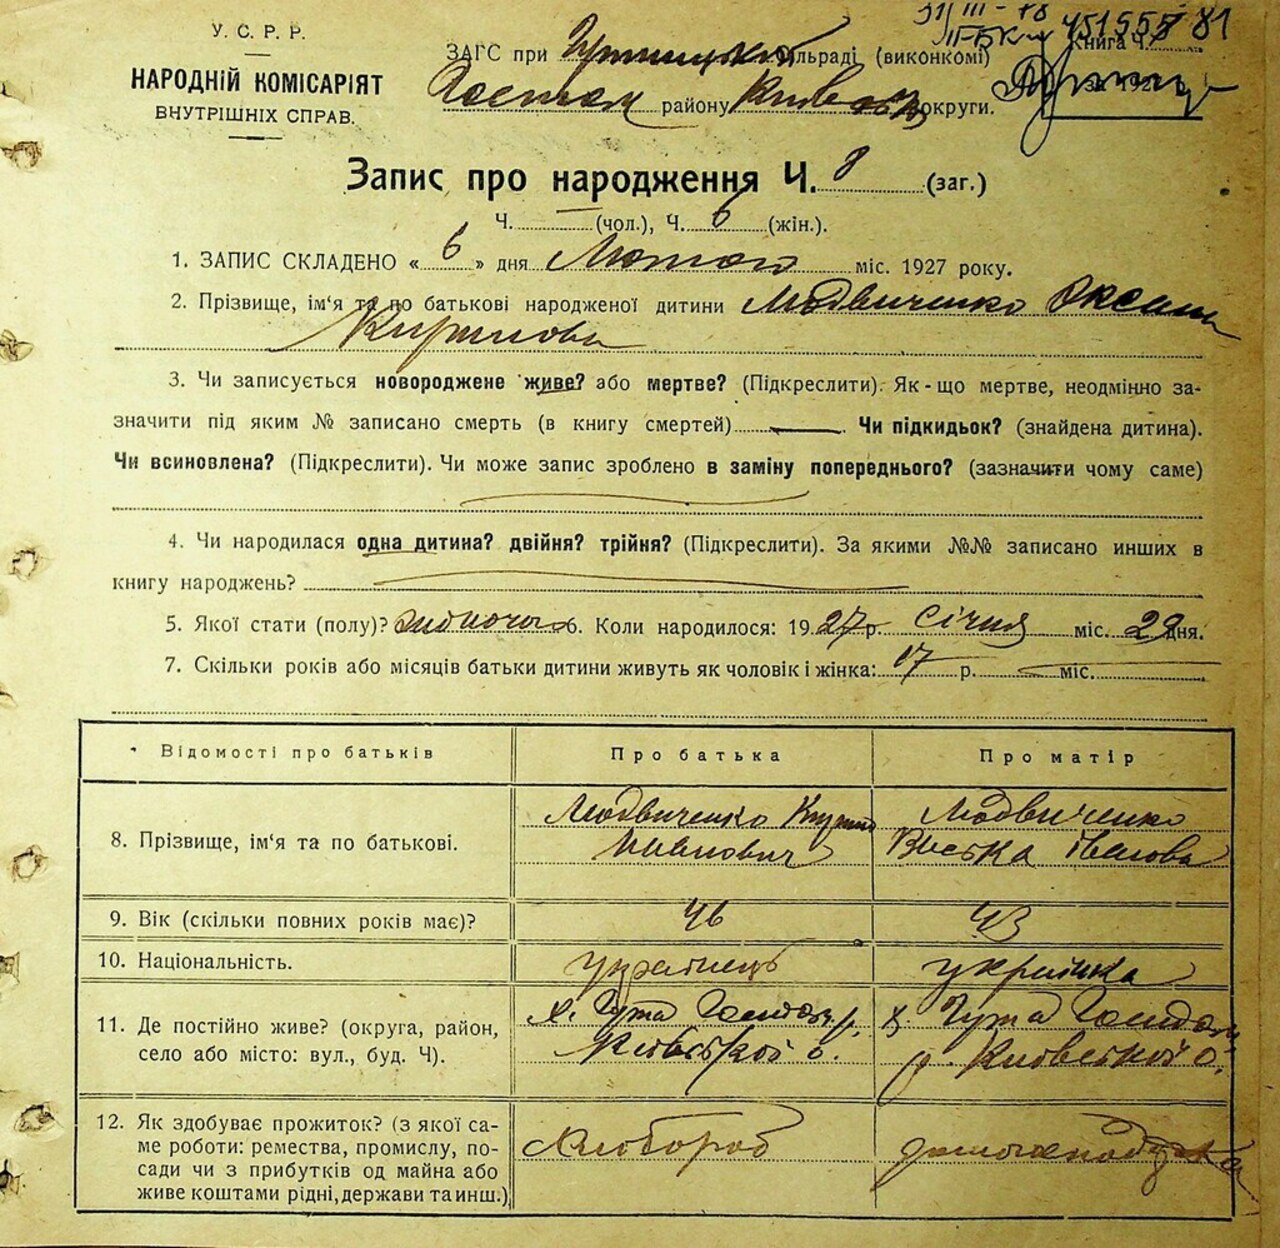 У. С. Р. Р.
НАРОДНІЙ КОМІСАРІЯТ
ВНУТРІШНІХ СПРАВ.
31/III - 78
451555 81
ЗАГС при сільраді (виконкомі)
Книга Ч.
району Київськ округи.
за 192
Запис про народження Ч. 8 (заг.)
Ч. — (чол.), Ч. 6 (жін.).
1. ЗАПИС СКЛАДЕНО « 6 » дня Лютого міс. 1927 року.
2. Прізвище, ім'я та по батькові народженої дитини Людвиченко Оксана
Кирилова
3. Чи записується новороджене живе? або мертве? (Підкреслити). Як-що мертве, неодмінно за-
значити під яким № записано смерть (в книгу смертей) — . Чи підкидьок? (знайдена дитина).
Чи всиновлена? (Підкреслити). Чи може запис зроблено в заміну попереднього? (зазначити чому саме)
4. Чи народилася одна дитина? двійня? трійня? (Підкреслити). За якими №№ записано инших в
книгу народжень?
5. Якої стати (полу)? жіночої 6. Коли народилося: 1927 р. січня міс. 29 дня.
7. Скільки років або місяців батьки дитини живуть як чоловік і жінка: 17 р. — міс.
Відомості про батьків Про батька Про матір
8. Прізвище, ім'я та по батькові. Людвиченко Кирило Людвиченко
Іванова
9. Вік (скільки повних років має)? 46 43
10. Національність. українець українка
11. Де постійно живе? (округа, район,
село або місто: вул., буд. Ч).
х. Гута р. Київської о.
х. Гута р. Київської о.
12. Як здобуває прожиток? (з якої са-
ме роботи: ремества, промислу, по-
сади чи з прибутків од майна або
живе коштами рідні, держави та инш.)
Хлібороб